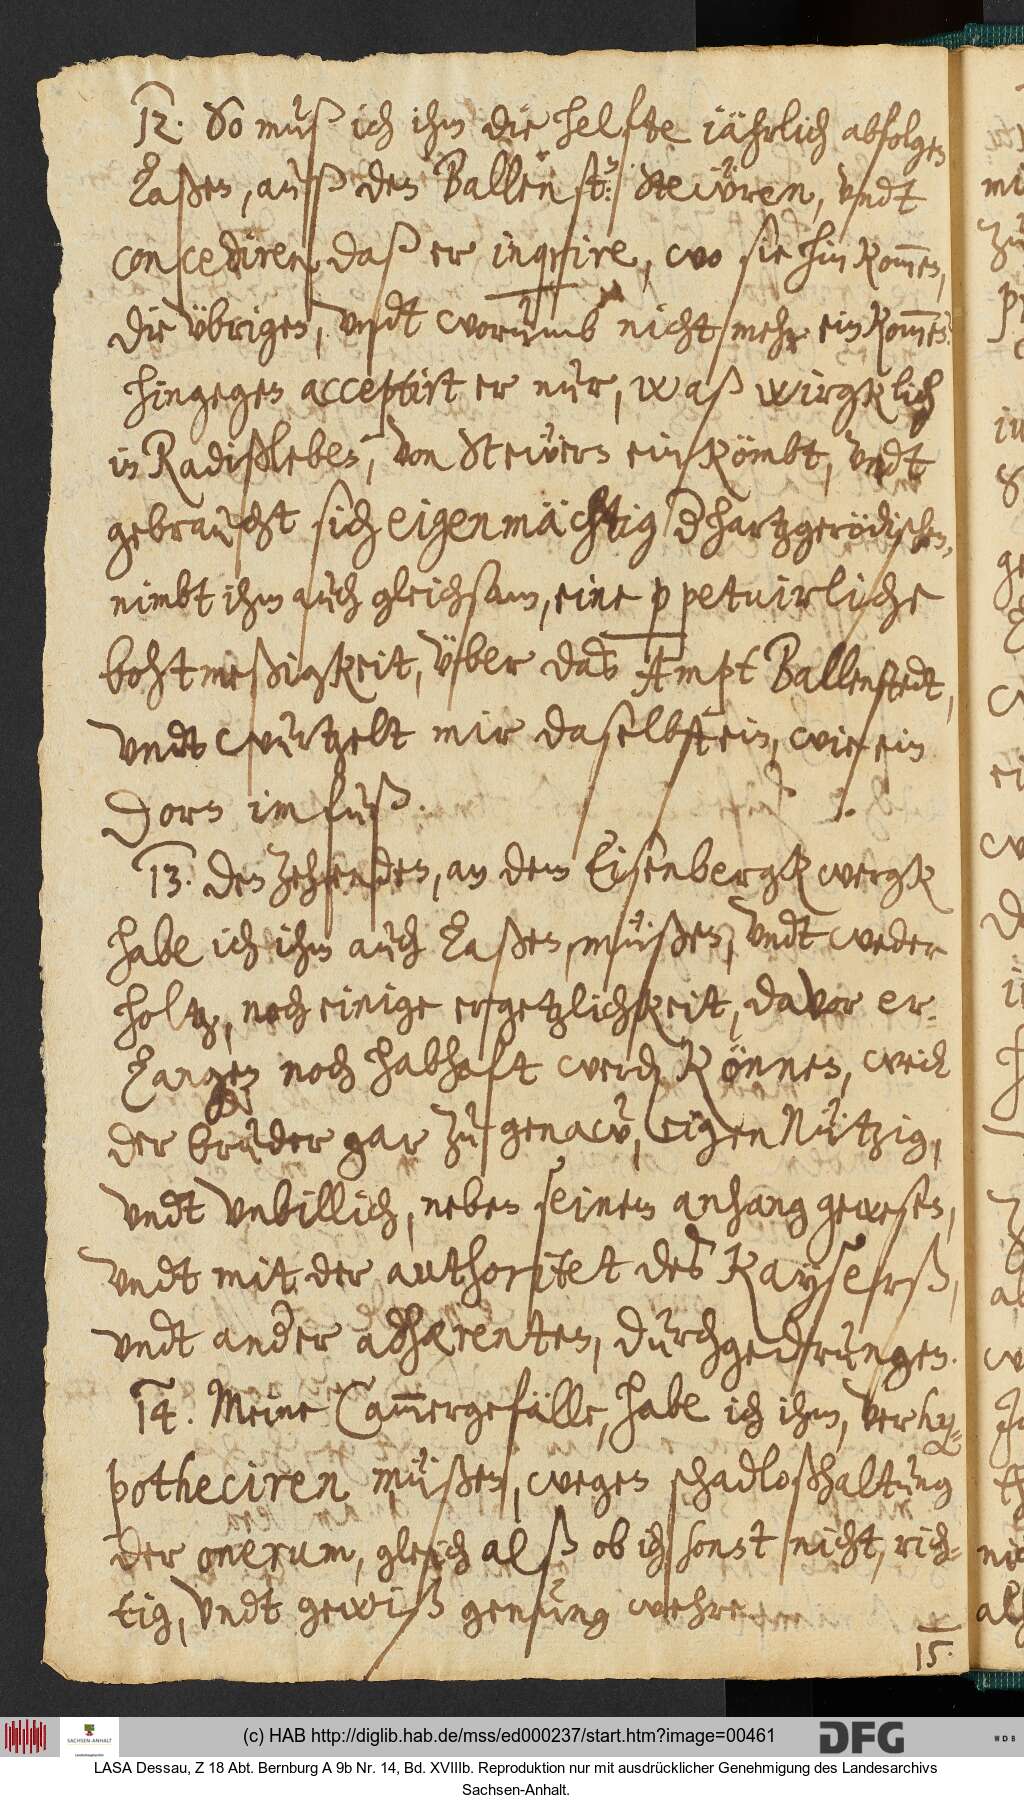 12. So muß ich ihm die helfte jährlich abfolgen
Laßen, auß den Ballenst: Steüren, vndt
concediren, daß er inqvire, wo sie hin kom̅en,
die übrigen, vndt worümb nicht mehr ein kom̅en.
Hingegen acceptirt er nur, waß wirgklich
in Radißleben, von Steüern ein kömbt, vndt
gebraucht sich eigenmächtig d hartzgerödischen,
nimbt ihm auch gleichsam, eine ppetuirliche
bohtmeßigkeit, über das Ampt Ballenstedt,
vndt wurtzelt mir daselbst ein, wie ein
Dorn im fuß.
13. Den Zehenden, an dem Eisenbergk wergk
habe ich ihm auch Laßen müßen, vndt weder
holtz, noch einige ergetzlichkeit, davor er-
Langen noch habhaft werden können, weil
der bruder gar zu genaw, eigen Nützig,
vndt vnbillich, neben seinem anhang gewesen,
vndt mit der authoritet des Kayserß,
vndt ander adhærenten, durchgedrungen.
14. Meine Cam̅ergefälle, habe ich ihm, verhy-
potheciren müßen, wegen schadloßhaltung
der onerum, gleich alß ob ich sonst nicht, rich-
tig, vndt gewiß genung wehre
15.
(c) HAB http://diglib.hab.de/mss/ed000237/start.htm?image=00461
SACHSEN-ANHALT
DFG
WDB
LASA Dessau, Z 18 Abt. Bernburg A 9b Nr. 14, Bd. XVIIIb. Reproduktion nur mit ausdrücklicher Genehmigung des Landesarchivs
Sachsen-Anhalt.